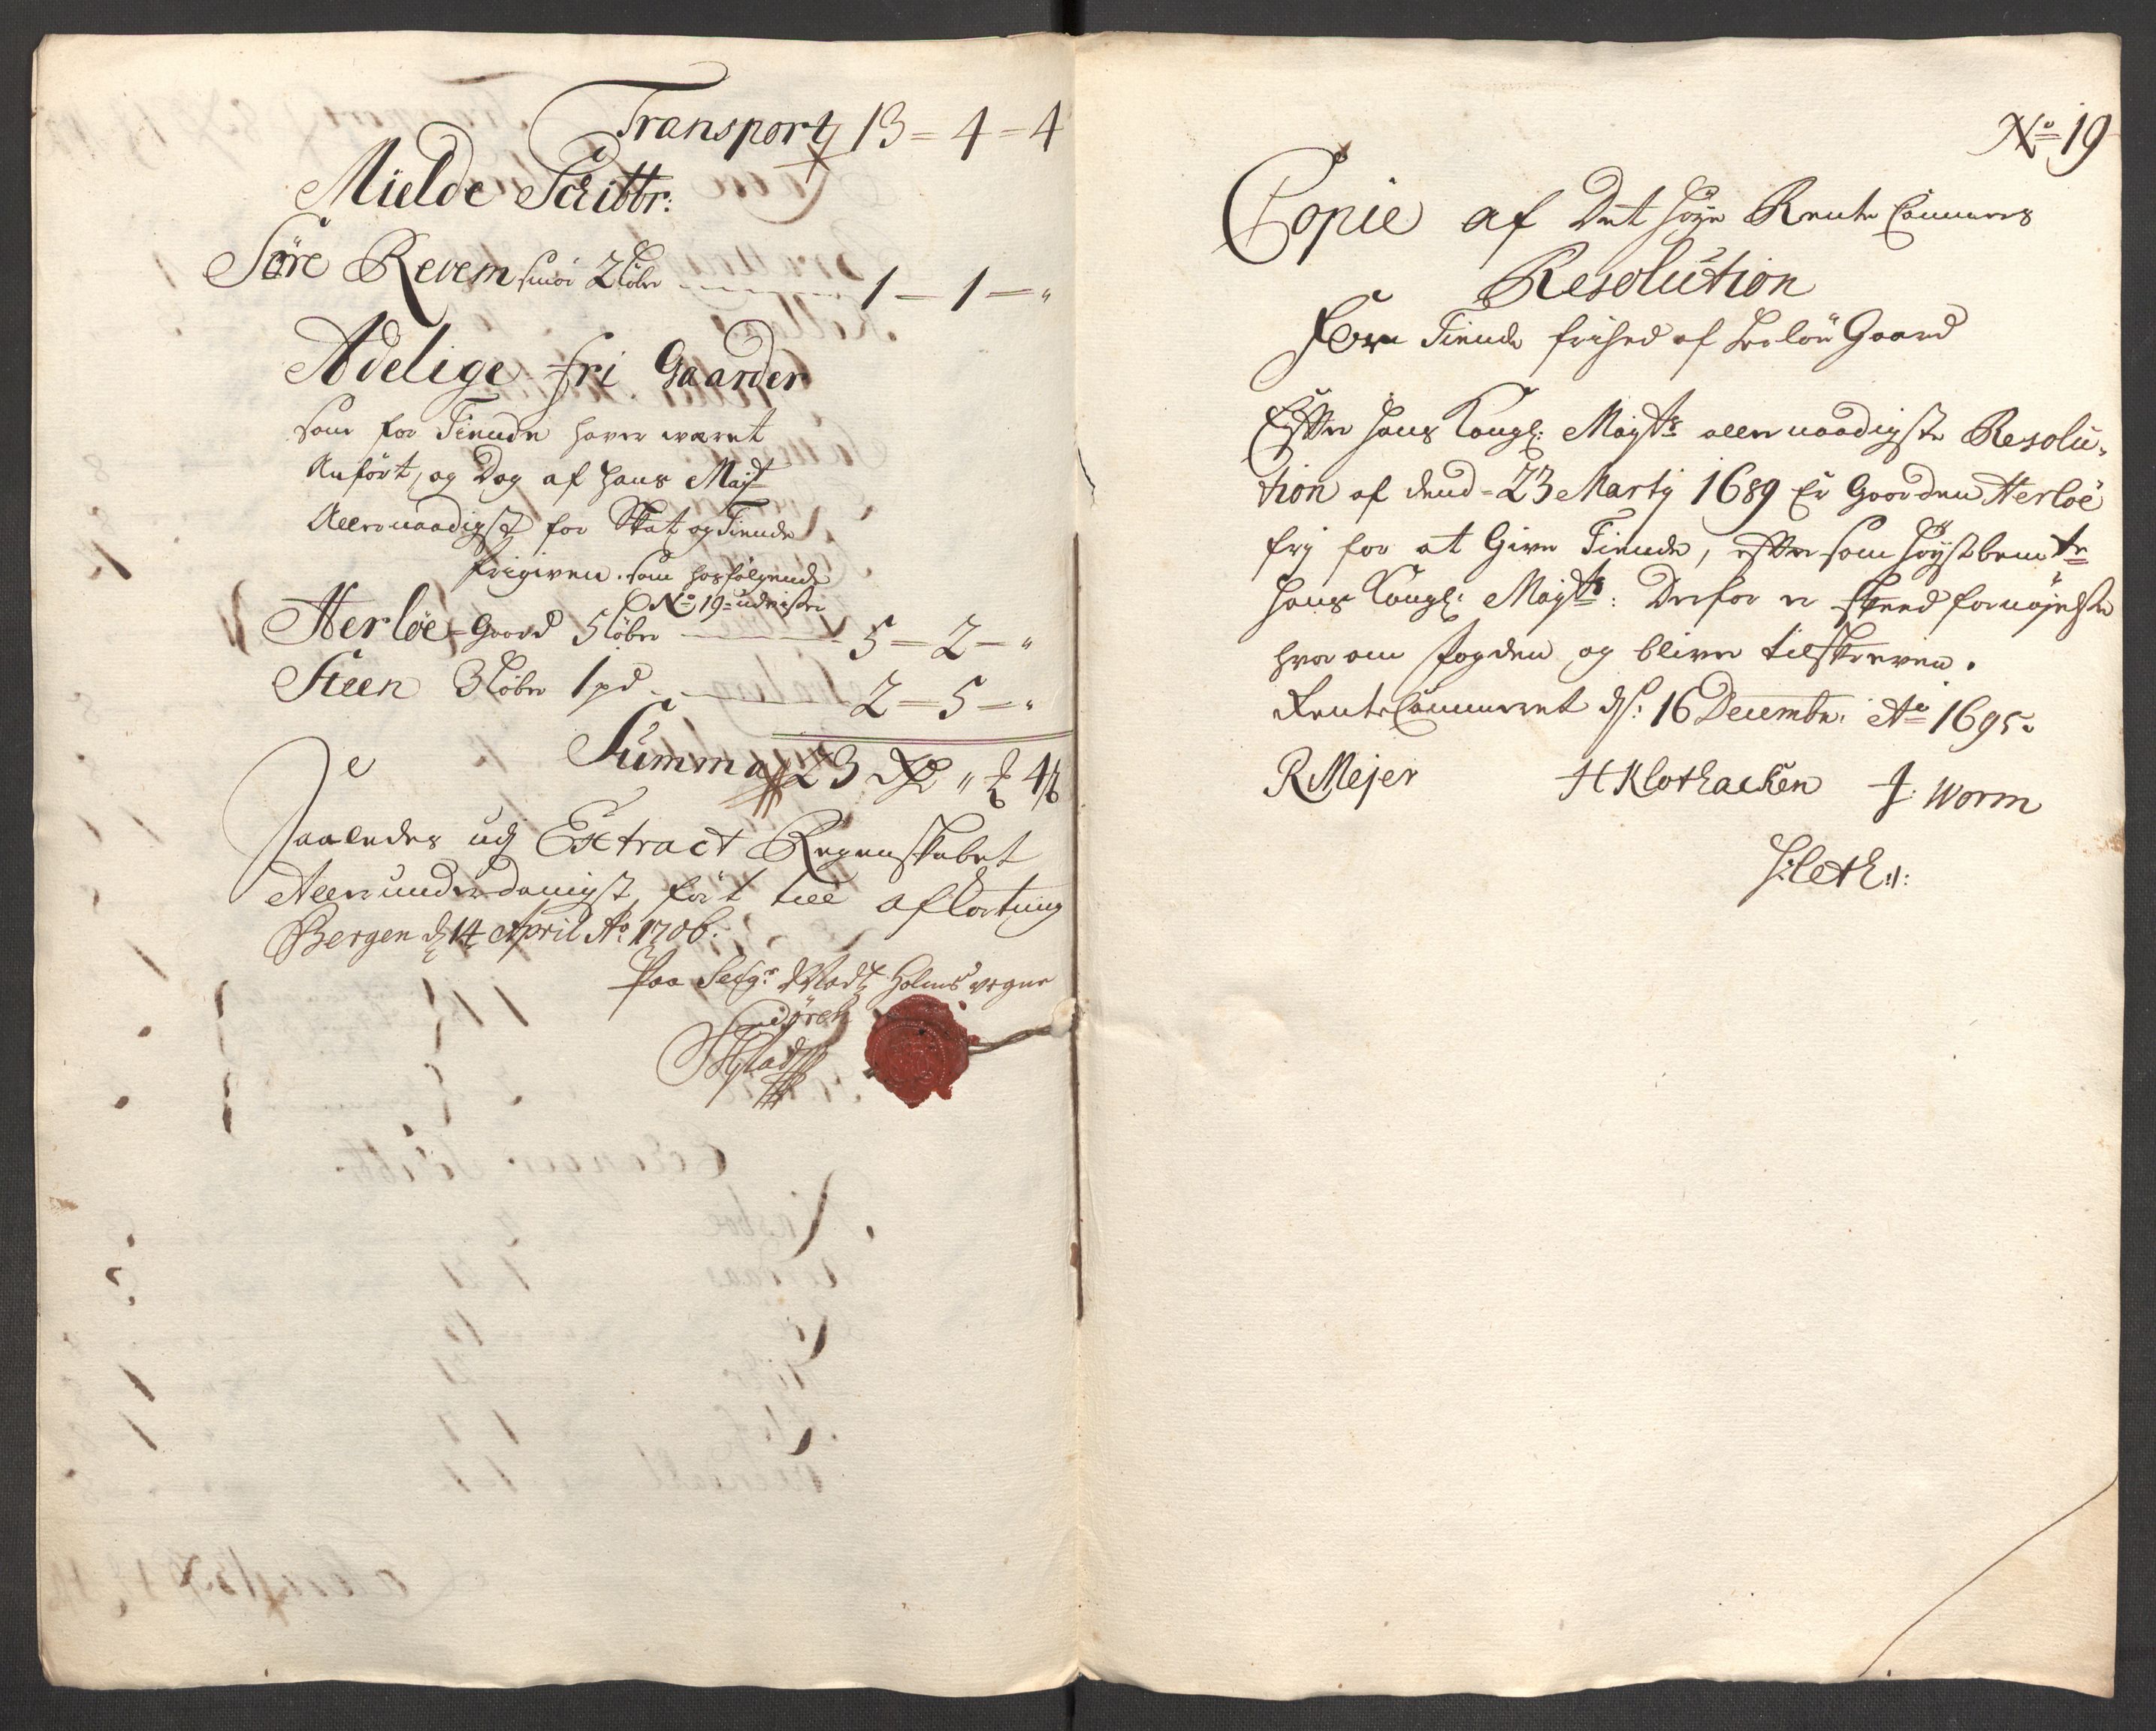 Transport 13 = 4 = 4
Mielde Schibbr:
Söre Revem smör 2 løber 1 — 1 — "
Adelige fri Gaarder
som for Tiende hafver wæret
Anført, og dog af Hans Mayt
Allernaadigst for Skat og Tiende
frigiven. som hosfølgende
No 19 = udviser
Herløe = Gaard 5 løber 5 = 2 — "
Steen 3 løber 1 pd 2 = 5 = "
Summa 23
Saaledes udj Extract Regenskabet
Allerunderdanigst ført till afkortning
Bergen d 14 April Ao 1706.
Paa Sefgr Madtz Holms vegne
No 19
Copie af Det Høye Rente Cammers
Resolution
For Tiende frihed af Herløe Gaard
Efter Hans Kongl: Mayts allernaadigste Resolu-
tion af dend = 23 Martij 1689 Er Gaarden Herløe
frj for at Give Tiende, efter som Høystbemte
Hans Kongl: Mayts: Derfor er skeed fornøjelse
hvorom fogden og bliver tilskreven.
RenteCammeret ds: 16 Decembr: Ao 1695.
R Mejer H Klothacken J: Worm